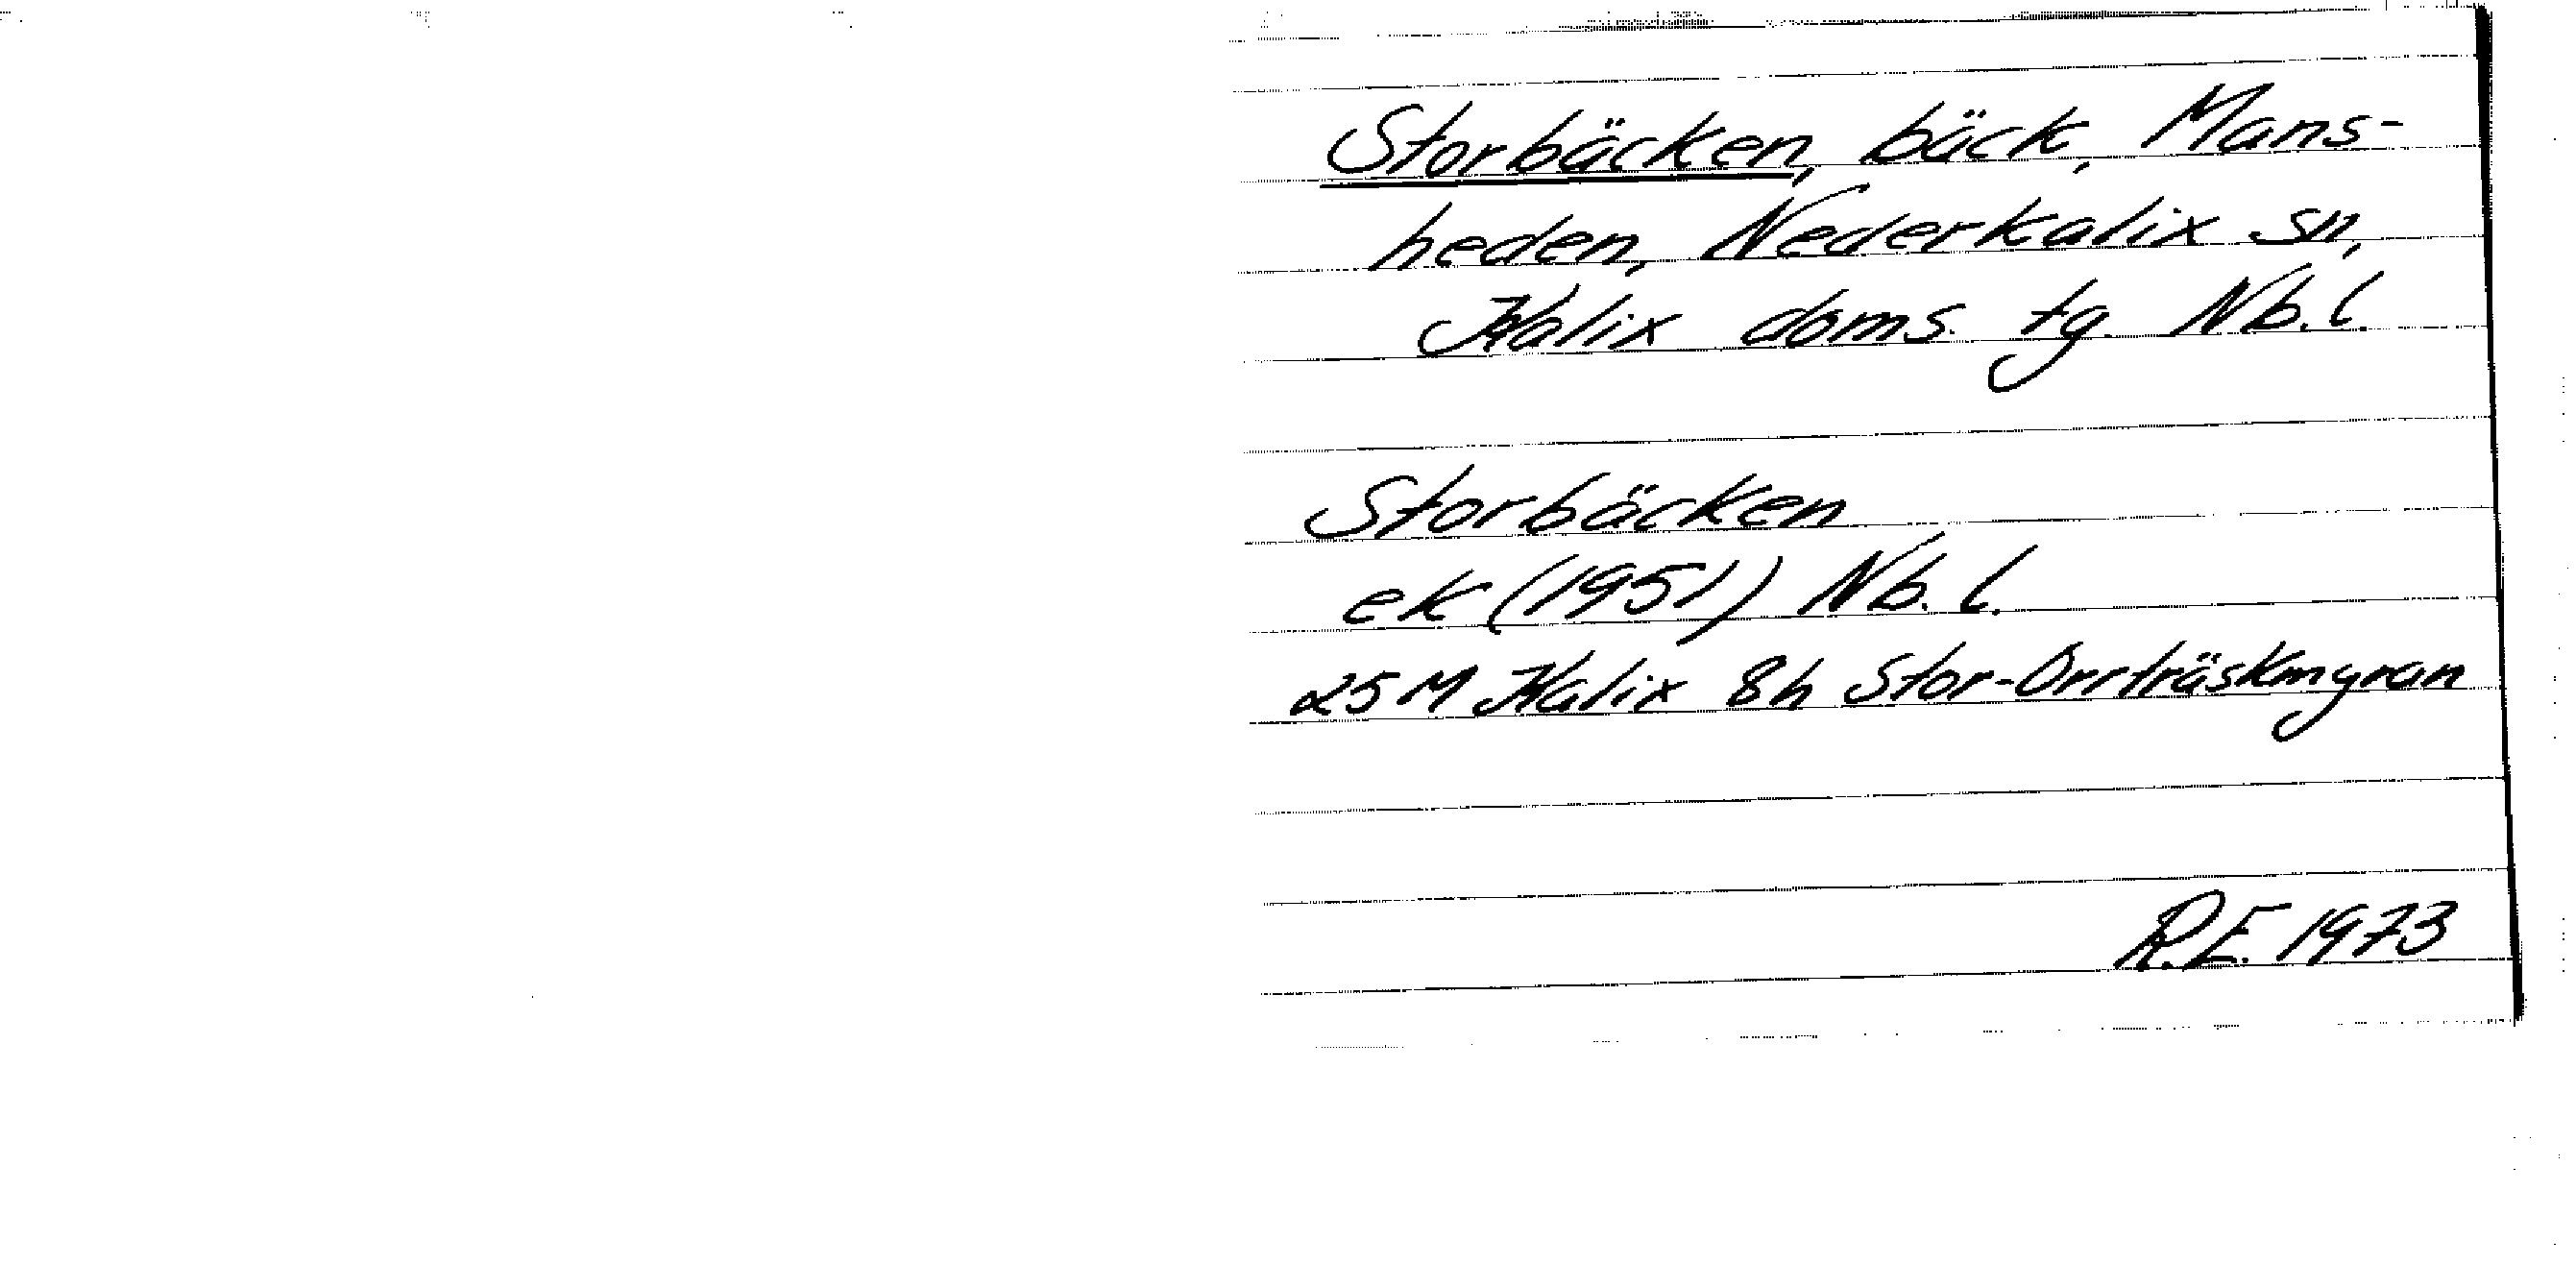 Storbäcken, bäck, Mans-
heden, Nederkalix sn,
Kalix doms. tg. Nb.l.
Storbäcken
ek (1951) Nb.l.
25M Kalix 8h Stor-Orrträskmyran
R.E. 1973